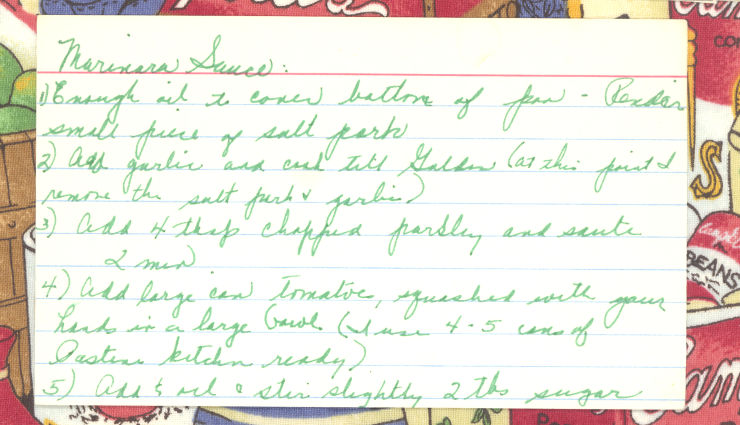 Marinara Sauce:
1) Enough oil to cover bottom of pan - Render
small piece of salt pork
2) Add garlic and cook till Golden (at this point I
remove the salt pork & garlic)
3) Add 4 tbsp chopped parsley and saute
2 min
4) Add large can tomatoes, squashed with your
hands in a large bowl (I use 4-5 cans of
Pastene kitchen ready)
5) Add to oil & stir slightly 2 tbs sugar
BEANS